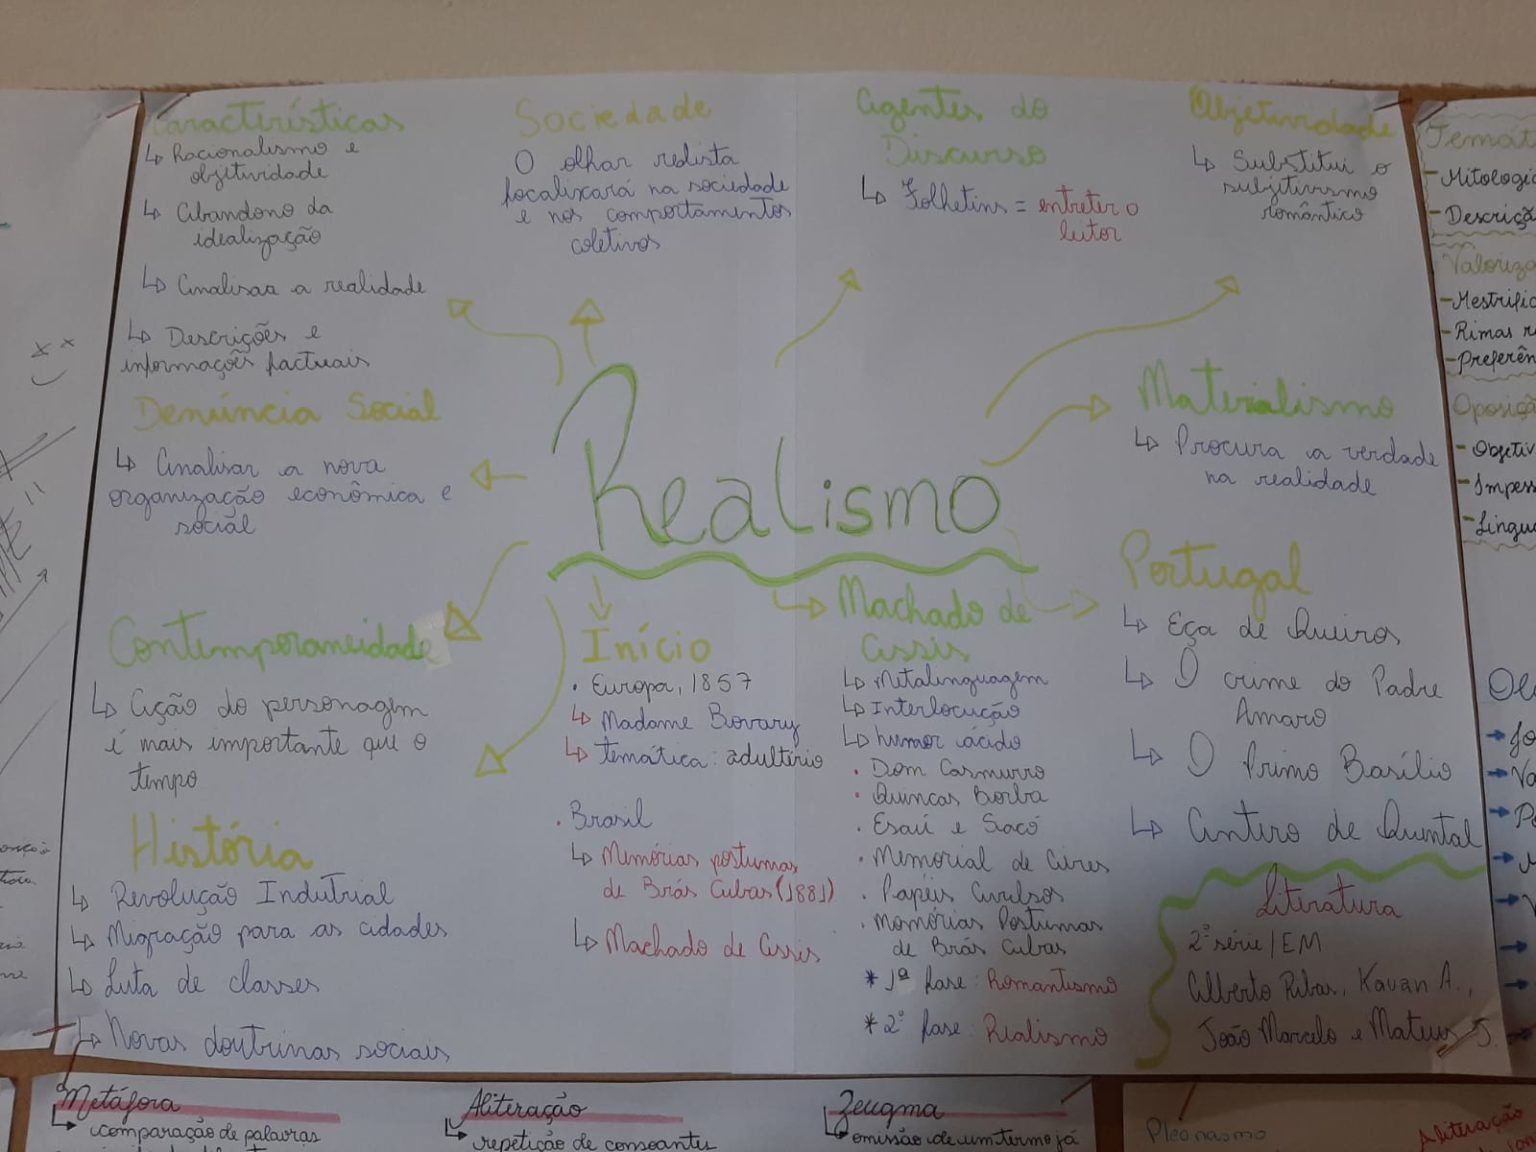 Características
Racionalismo e
objetividade
Abandono da
idealização
Analisar a realidade
Descrições e
informações factuais
Sociedade
O olhar realista
focalixará na sociedade
e nos comportamentos
coletivos
Agentes do
Discurso
Folhetins = entreter o
leitor
Objetividade
Substitui o
subjtivismo
romântico
Denúncia Social
Analisar a nova
organização econômica e
social
Realismo
Materialismo
Procura a verdade
na realidade
Contemporaneidade
Ação do personagem
é mais importante que o
tempo
História
Revolução Indutrial
Migração para as cidades
Luta de classes
Novas doutrinas sociais
Início
• Europa, 1857
Madame Bovary
temática: adultério
• Brasil
Memórias póstumas
de Brás Cubas (1881)
Machado de Assis
Machado de
Assis
Metalinguagem
Interlocução
humor ácido
• Dom Casmurro
• Quincas Borba
• Esaú e Jacó
• Memorial de Aires
• Papéis Avulsos
• Momórias Póstumas
de Brás Cubas
* 1ª fase: Romantismo
* 2ª fase: Realismo
Portugal
Eça de Queiros
O crime do Padre
Amaro
O Primo Basílio
Antero de Quental
Literatura
2ª série/EM
Gilberto Ribas, Kauan A.,
João Marcelo e Mateus J.
Metáfora
comparação de palavras
Aliteração
repetição de consoantes
Zeugma
omissão de um termo já
Pleonasmo
Aliteração
- Mitologia
- Descriçã
Valoriza
- Rimas r
- Preferên
Oposiçã
- Objetiv
- Impess
- Lingua